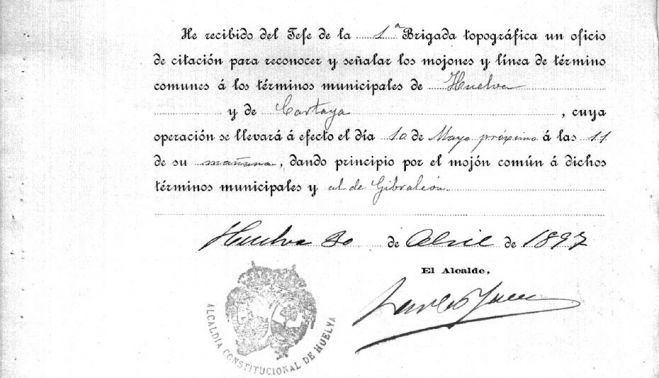 He recibido del Jefe de la 1ª Brigada topográfica un oficio
de citación para reconocer y señalar los mojones y línea de término
comunes á los términos municipales de Huelva
y de Cartaya, cuya
operación se llevará á efecto el día 10 de Mayo próximo á las 11
de su mañana, dando principio por el mojón común á dichos
términos municipales y al de Gibraleón.
Huelva 30 de Abril de 1897
El Alcalde,
ALCALDÍA CONSTITUCIONAL DE HUELVA